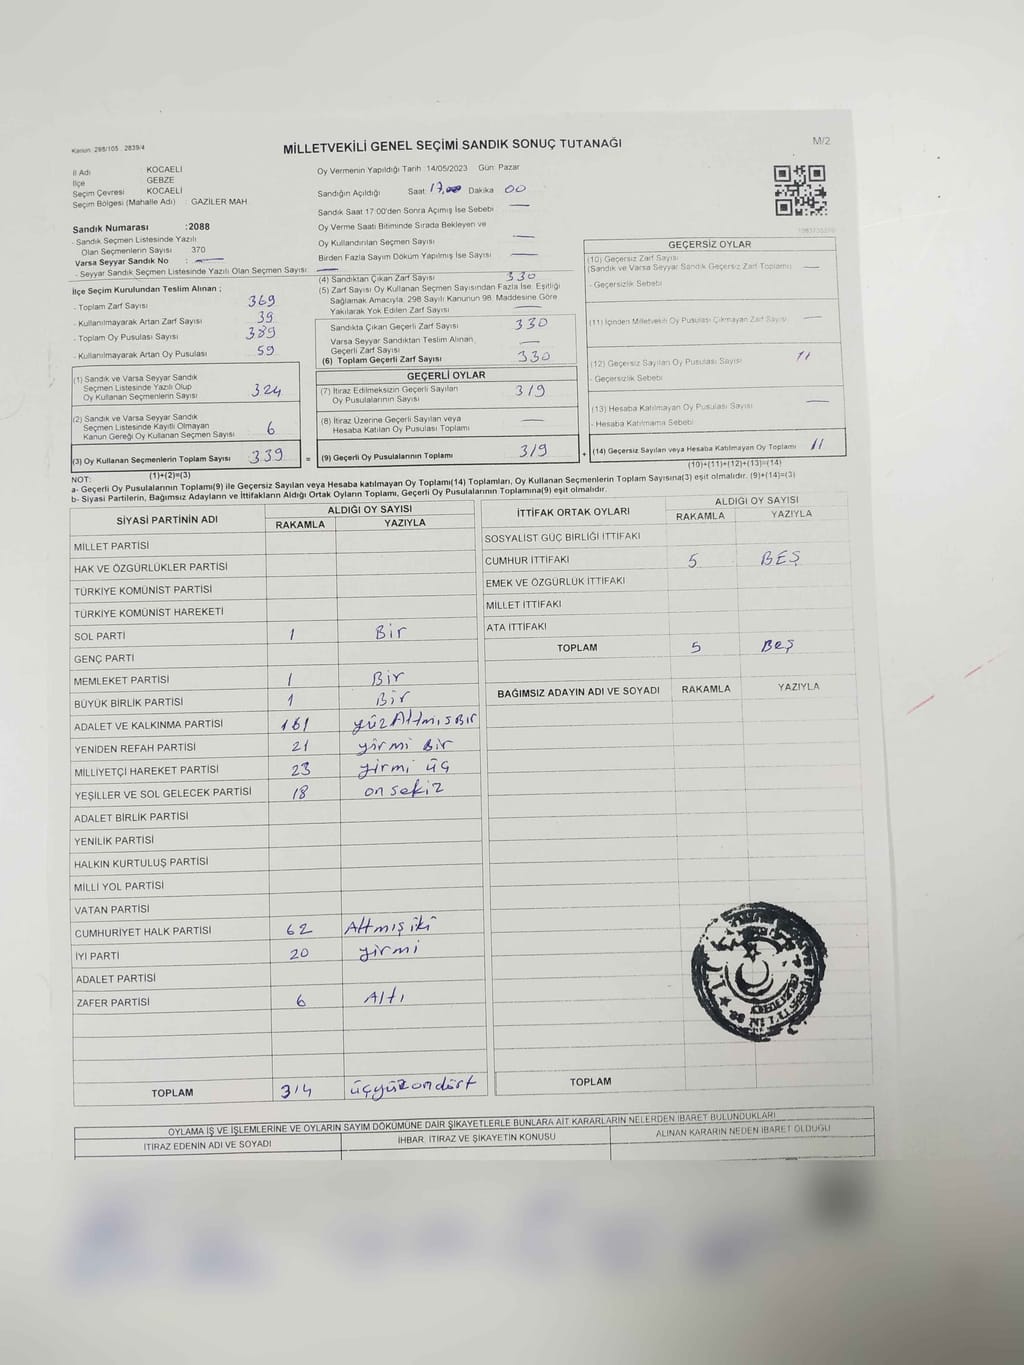 Kanun: 298/105 2839/4
MİLLETVEKİLİ GENEL SEÇİMİ SANDIK SONUÇ TUTANAĞI
M/2
İl Adı KOCAELİ
İlçe GEBZE
Seçim Çevresi KOCAELİ
Seçim Bölgesi (Mahalle Adı) : GAZİLER MAH.
Sandık Numarası :2088
- Sandık Seçmen Listesinde Yazılı
Olan Seçmenlerin Sayısı 370
Varsa Seyyar Sandık No : —
- Seyyar Sandık Seçmen Listesinde Yazılı Olan Seçmen Sayısı : —
İlçe Seçim Kurulundan Teslim Alınan ;
- Toplam Zarf Sayısı 369
- Kullanılmayarak Artan Zarf Sayısı 39
- Toplam Oy Pusulası Sayısı 389
- Kullanılmayarak Artan Oy Pusulası 59
(1) Sandık ve Varsa Seyyar Sandık
Seçmen Listesinde Yazılı Olup
Oy Kullanan Seçmenlerin Sayısı 324
(2) Sandık ve Varsa Seyyar Sandık
Seçmen Listesinde Kayıtlı Olmayan
Kanun Gereği Oy Kullanan Seçmen Sayısı 6
(3) Oy Kullanan Seçmenlerin Toplam Sayısı 339 =
(1)+(2)=(3)
Oy Vermenin Yapıldığı Tarih 14/05/2023 Gün: Pazar
Sandığın Açıldığı Saat 17, Dakika 00
Sandık Saat 17:00'den Sonra Açımış İse Sebebi —
Oy Verme Saati Bitiminde Sırada Bekleyen ve
Oy Kullandırılan Seçmen Sayısı —
Birden Fazla Sayım Döküm Yapılmış İse Sayısı —
(4) Sandıktan Çıkan Zarf Sayısı 330
(5) Zarf Sayısı Oy Kullanan Seçmen Sayısından Fazla İse, Eşitliği
Sağlamak Amacıyla, 298 Sayılı Kanunun 98. Maddesine Göre
Yakılarak Yok Edilen Zarf Sayısı —
Sandıkta Çıkan Geçerli Zarf Sayısı 330
Varsa Seyyar Sandıktan Teslim Alınan
Geçerli Zarf Sayısı —
(6) Toplam Geçerli Zarf Sayısı 330
GEÇERLİ OYLAR
(7) İtiraz Edilmeksizin Geçerli Sayılan
Oy Pusulalarının Sayısı 319
(8) İtiraz Üzerine Geçerli Sayılan veya
Hesaba Katılan Oy Pusulası Toplamı —
(9) Geçerli Oy Pusulalarının Toplamı 319 +
GEÇERSİZ OYLAR
(10) Geçersiz Zarf Sayısı
(Sandık ve Varsa Seyyar Sandık Geçersiz Zarf Toplamı) —
- Geçersizlik Sebebi
(11) İçinden Milletvekili Oy Pusulası Çıkmayan Zarf Sayısı —
(12) Geçersiz Sayılan Oy Pusulası Sayısı 11
- Geçersizlik Sebebi
(13) Hesaba Katılmayan Oy Pusulası Sayısı —
- Hesaba Katılmama Sebebi
(14) Geçersiz Sayılan veya Hesaba Katılmayan Oy Toplamı 11
(10)+(11)+(12)+(13)=(14)
NOT:
a- Geçerli Oy Pusulalarının Toplamı(9) ile Geçersiz Sayılan veya Hesaba katılmayan Oy Toplam(14) Toplamları, Oy Kullanan Seçmenlerin Toplam Sayısına(3) eşit olmalıdır. (9)+(14)=(3)
b- Siyasi Partilerin, Bağımsız Adayların ve İttifakların Aldığı Ortak Oyların Toplamı, Geçerli Oy Pusulalarının Toplamına(9) eşit olmalıdır.
SİYASİ PARTİNİN ADI ALDIĞI OY SAYISI
RAKAMLA YAZIYLA
MİLLET PARTİSİ
HAK VE ÖZGÜRLÜKLER PARTİSİ
TÜRKİYE KOMÜNİST PARTİSİ
TÜRKİYE KOMÜNİST HAREKETİ
SOL PARTİ 1 Bir
GENÇ PARTİ
MEMLEKET PARTİSİ 1 Bir
BÜYÜK BİRLİK PARTİSİ 1 Bir
ADALET VE KALKINMA PARTİSİ 161 yüzAltmışBir
YENİDEN REFAH PARTİSİ 21 yirmi Bir
MİLLİYETÇİ HAREKET PARTİSİ 23 yirmi üç
YEŞİLLER VE SOL GELECEK PARTİSİ 18 on sekiz
ADALET BİRLİK PARTİSİ
YENİLİK PARTİSİ
HALKIN KURTULUŞ PARTİSİ
MİLLİ YOL PARTİSİ
VATAN PARTİSİ
CUMHURİYET HALK PARTİSİ 62 Altmış iki
İYİ PARTİ 20 yirmi
ADALET PARTİSİ
ZAFER PARTİSİ 6 Altı
TOPLAM 314 üçyüzondört
İTTİFAK ORTAK OYLARI ALDIĞI OY SAYISI
RAKAMLA YAZIYLA
SOSYALİST GÜÇ BİRLİĞİ İTTİFAKI
CUMHUR İTTİFAKI 5 BEŞ
EMEK VE ÖZGÜRLÜK İTTİFAKI
MİLLET İTTİFAKI
ATA İTTİFAKI
TOPLAM 5 Beş
BAĞIMSIZ ADAYIN ADI VE SOYADI RAKAMLA YAZIYLA
TOPLAM
OYLAMA İŞ VE İŞLEMLERİNE VE OYLARIN SAYIM DÖKÜMÜNE DAİR ŞİKAYETLERLE BUNLARA AİT KARARLARIN NELERDEN İBARET BULUNDUKLARI
İTİRAZ EDENİN ADI VE SOYADI İHBAR, İTİRAZ VE ŞİKAYETİN KONUSU ALINAN KARARIN NEDEN İBARET OLDUĞU